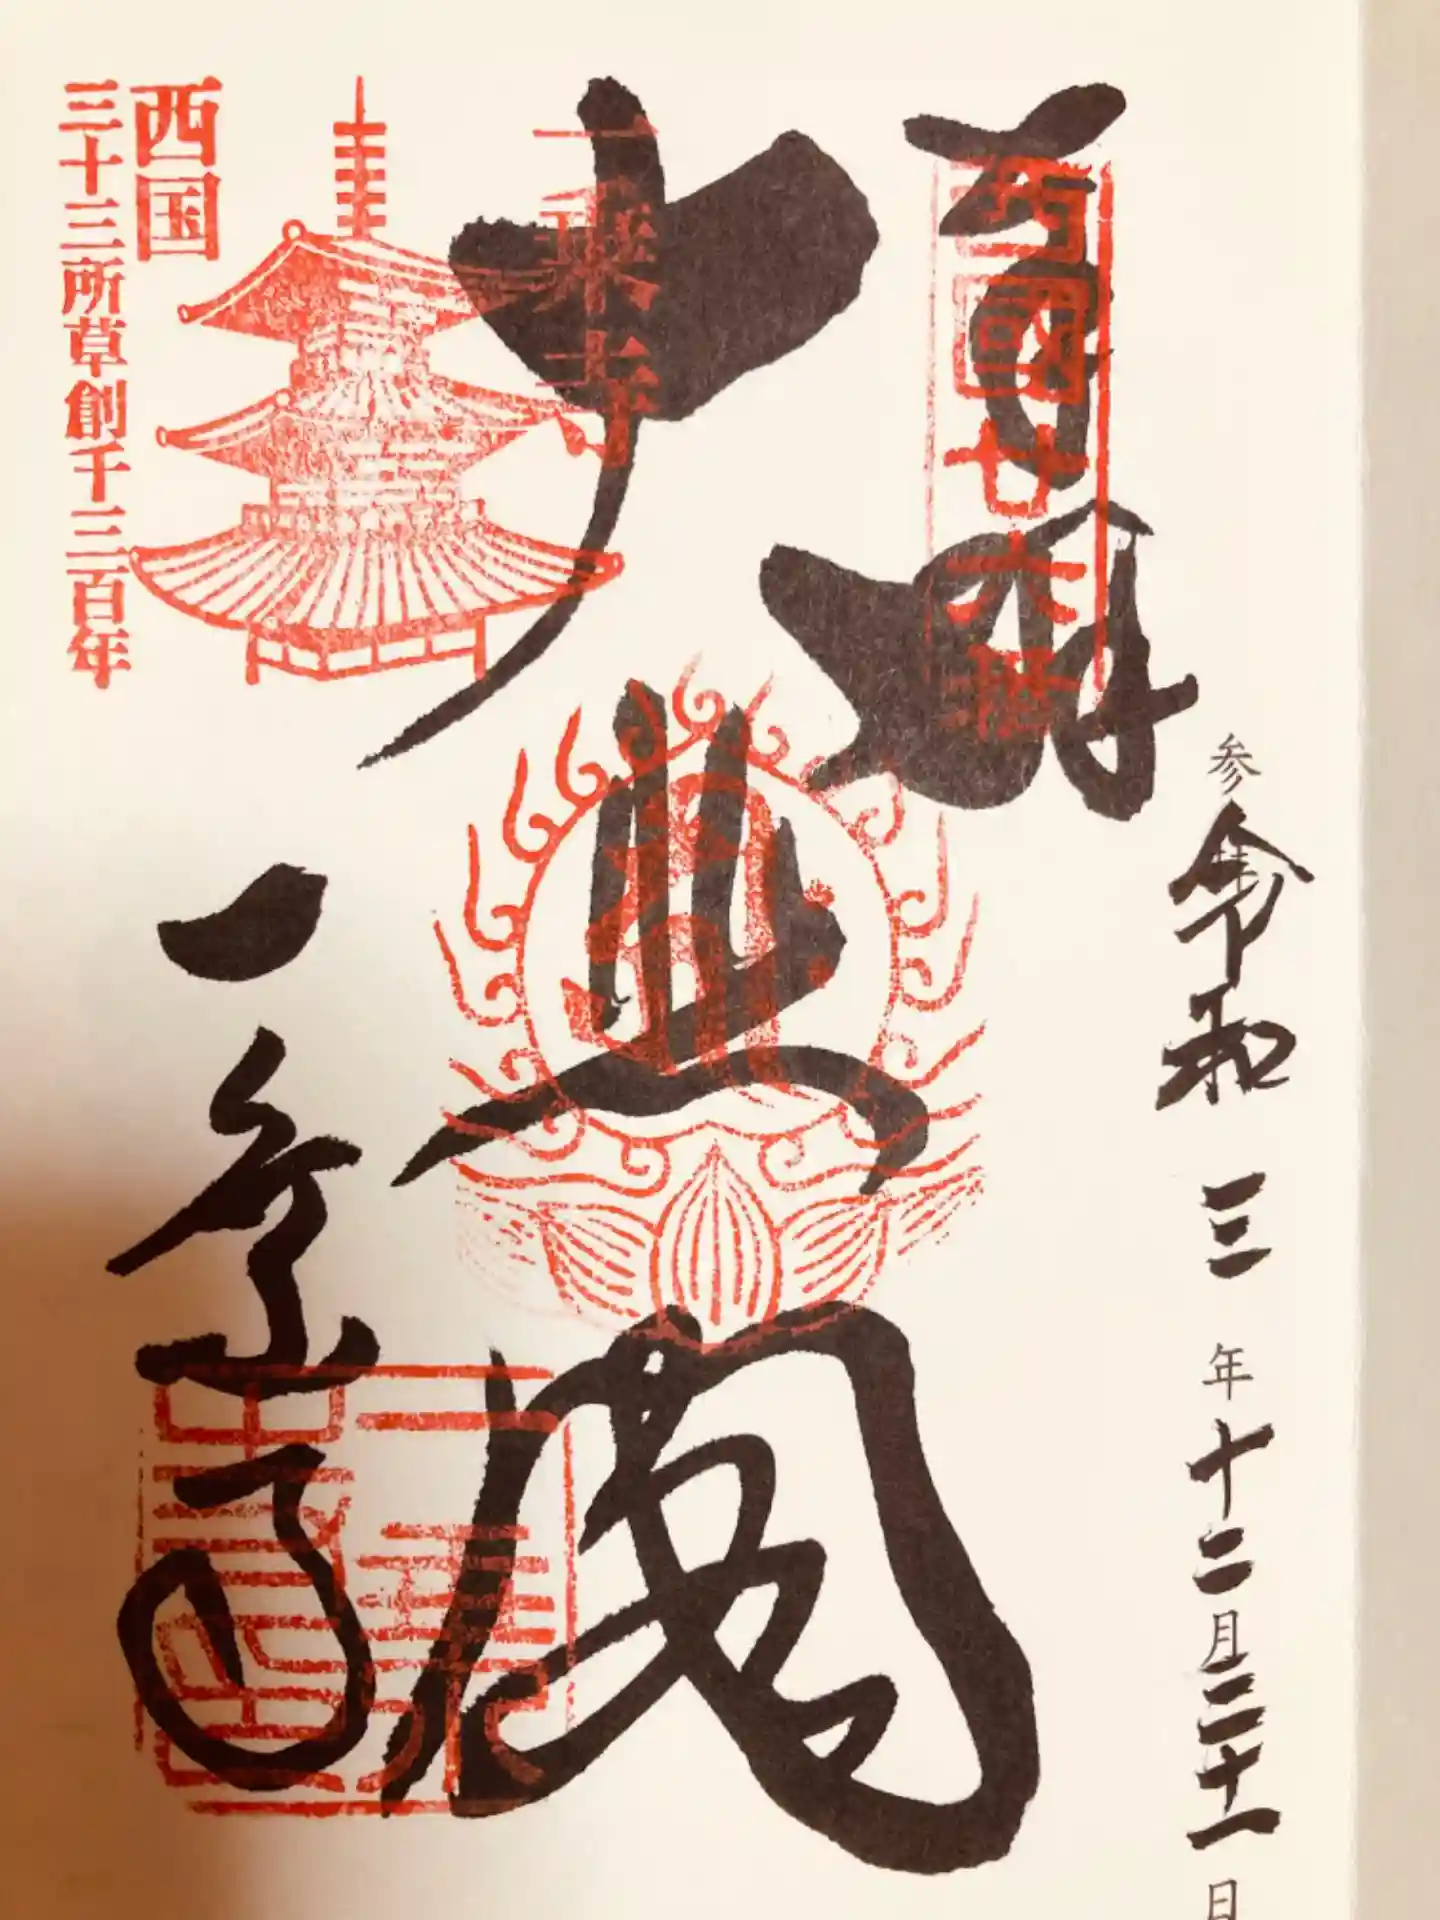 参拝 令和三年十二月二十一日
奉拝
西國廿六番
大悲閣
一乗寺
一乗寺
西国
三十三所草創千三百年